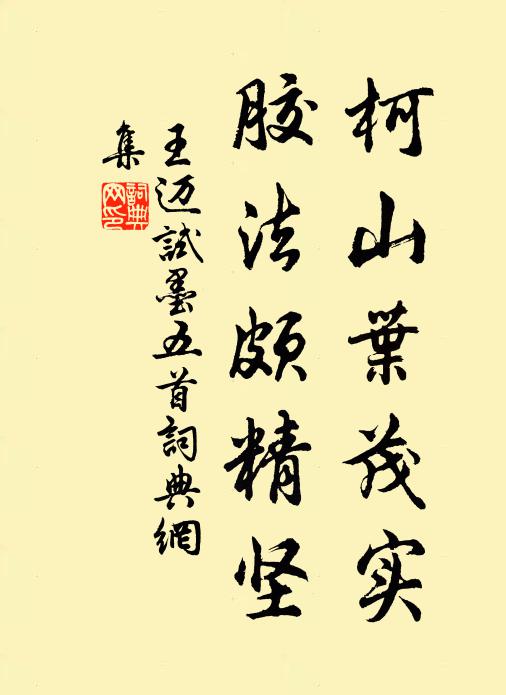 柯山葉茂实
胶法颇精坚
王迈試墨五首詞典網
集
詞典网印